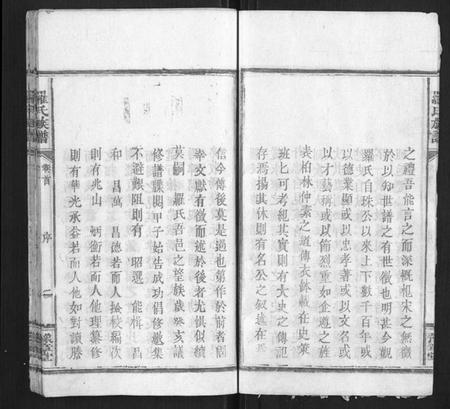 之禮吾能言之而深慨杞宋之無徵
於以知世譜之有世徵也明甚今觀
羅氏自珠公以來上下數千百年或
以德業顯或以忠孝著或以文名或
以才藝稱或以節烈重如企遵之
表柏林仲素之道傳衣鉢載在史策
班匕可考絕其實則有大史之傳記
存焉揚其休則有名公之叙述在
信今傳後莫是過也第作於前者固
幸文獻有徵而述於後者尤懼似續
莫嗣 羅氏吾邑之望族歲癸亥議
修譜 閱甲子始告成功倡修鳩集
不避艱阻則有 昭選 能楫 昌
和 昌萬 昌德若而人 校編次
則有兆山 炳衛若而人他理纂修
則有華光承爸若而人他如對讀謄
羅氏族譜
卷首
序
二
羅氏族譜